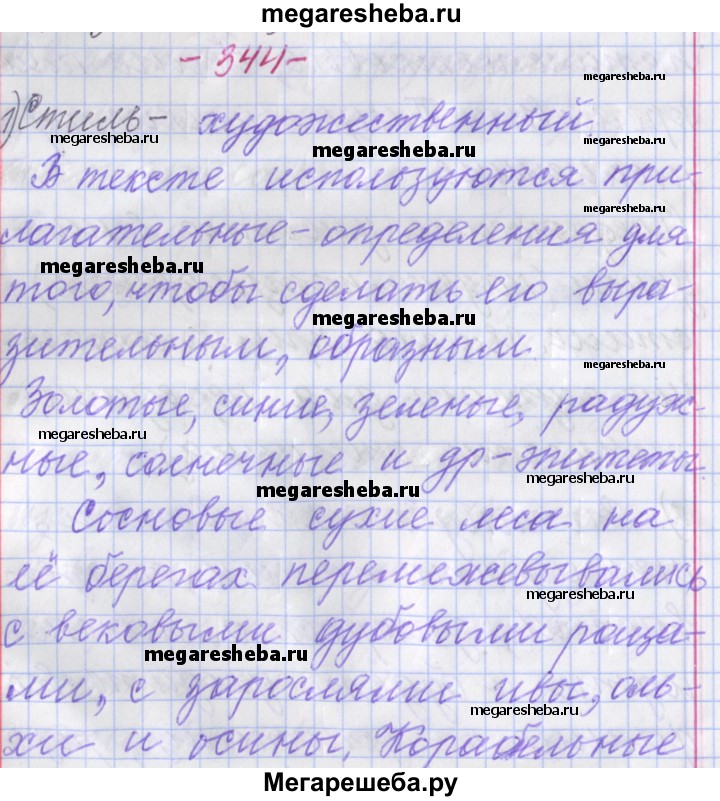 megaresheba.ru
- 344-
megaresheba.ru
1) Стиль- художественный.
megaresheba.ru
megaresheba.ru
В тексте используются при-
megaresheba.ru
лагательные-определения для
megaresheba.ru
того, чтобы сделать его выра-
megaresheba.ru
зительным, образным
megaresheba.ru
Золотые, синие, зеленые, радуж-
megaresheba.ru
ные, солнечные и др-эпитеты
megaresheba.ru
megaresheba.ru
Сосновые сухие леса на
её берегах перемежевывались
megaresheba.ru
с вековыми дубовыми роща-
megaresheba.ru
ми, с зарослями ивы, оль-
megaresheba.ru
хи и осины. Корабельные
Мегарешеба.ру